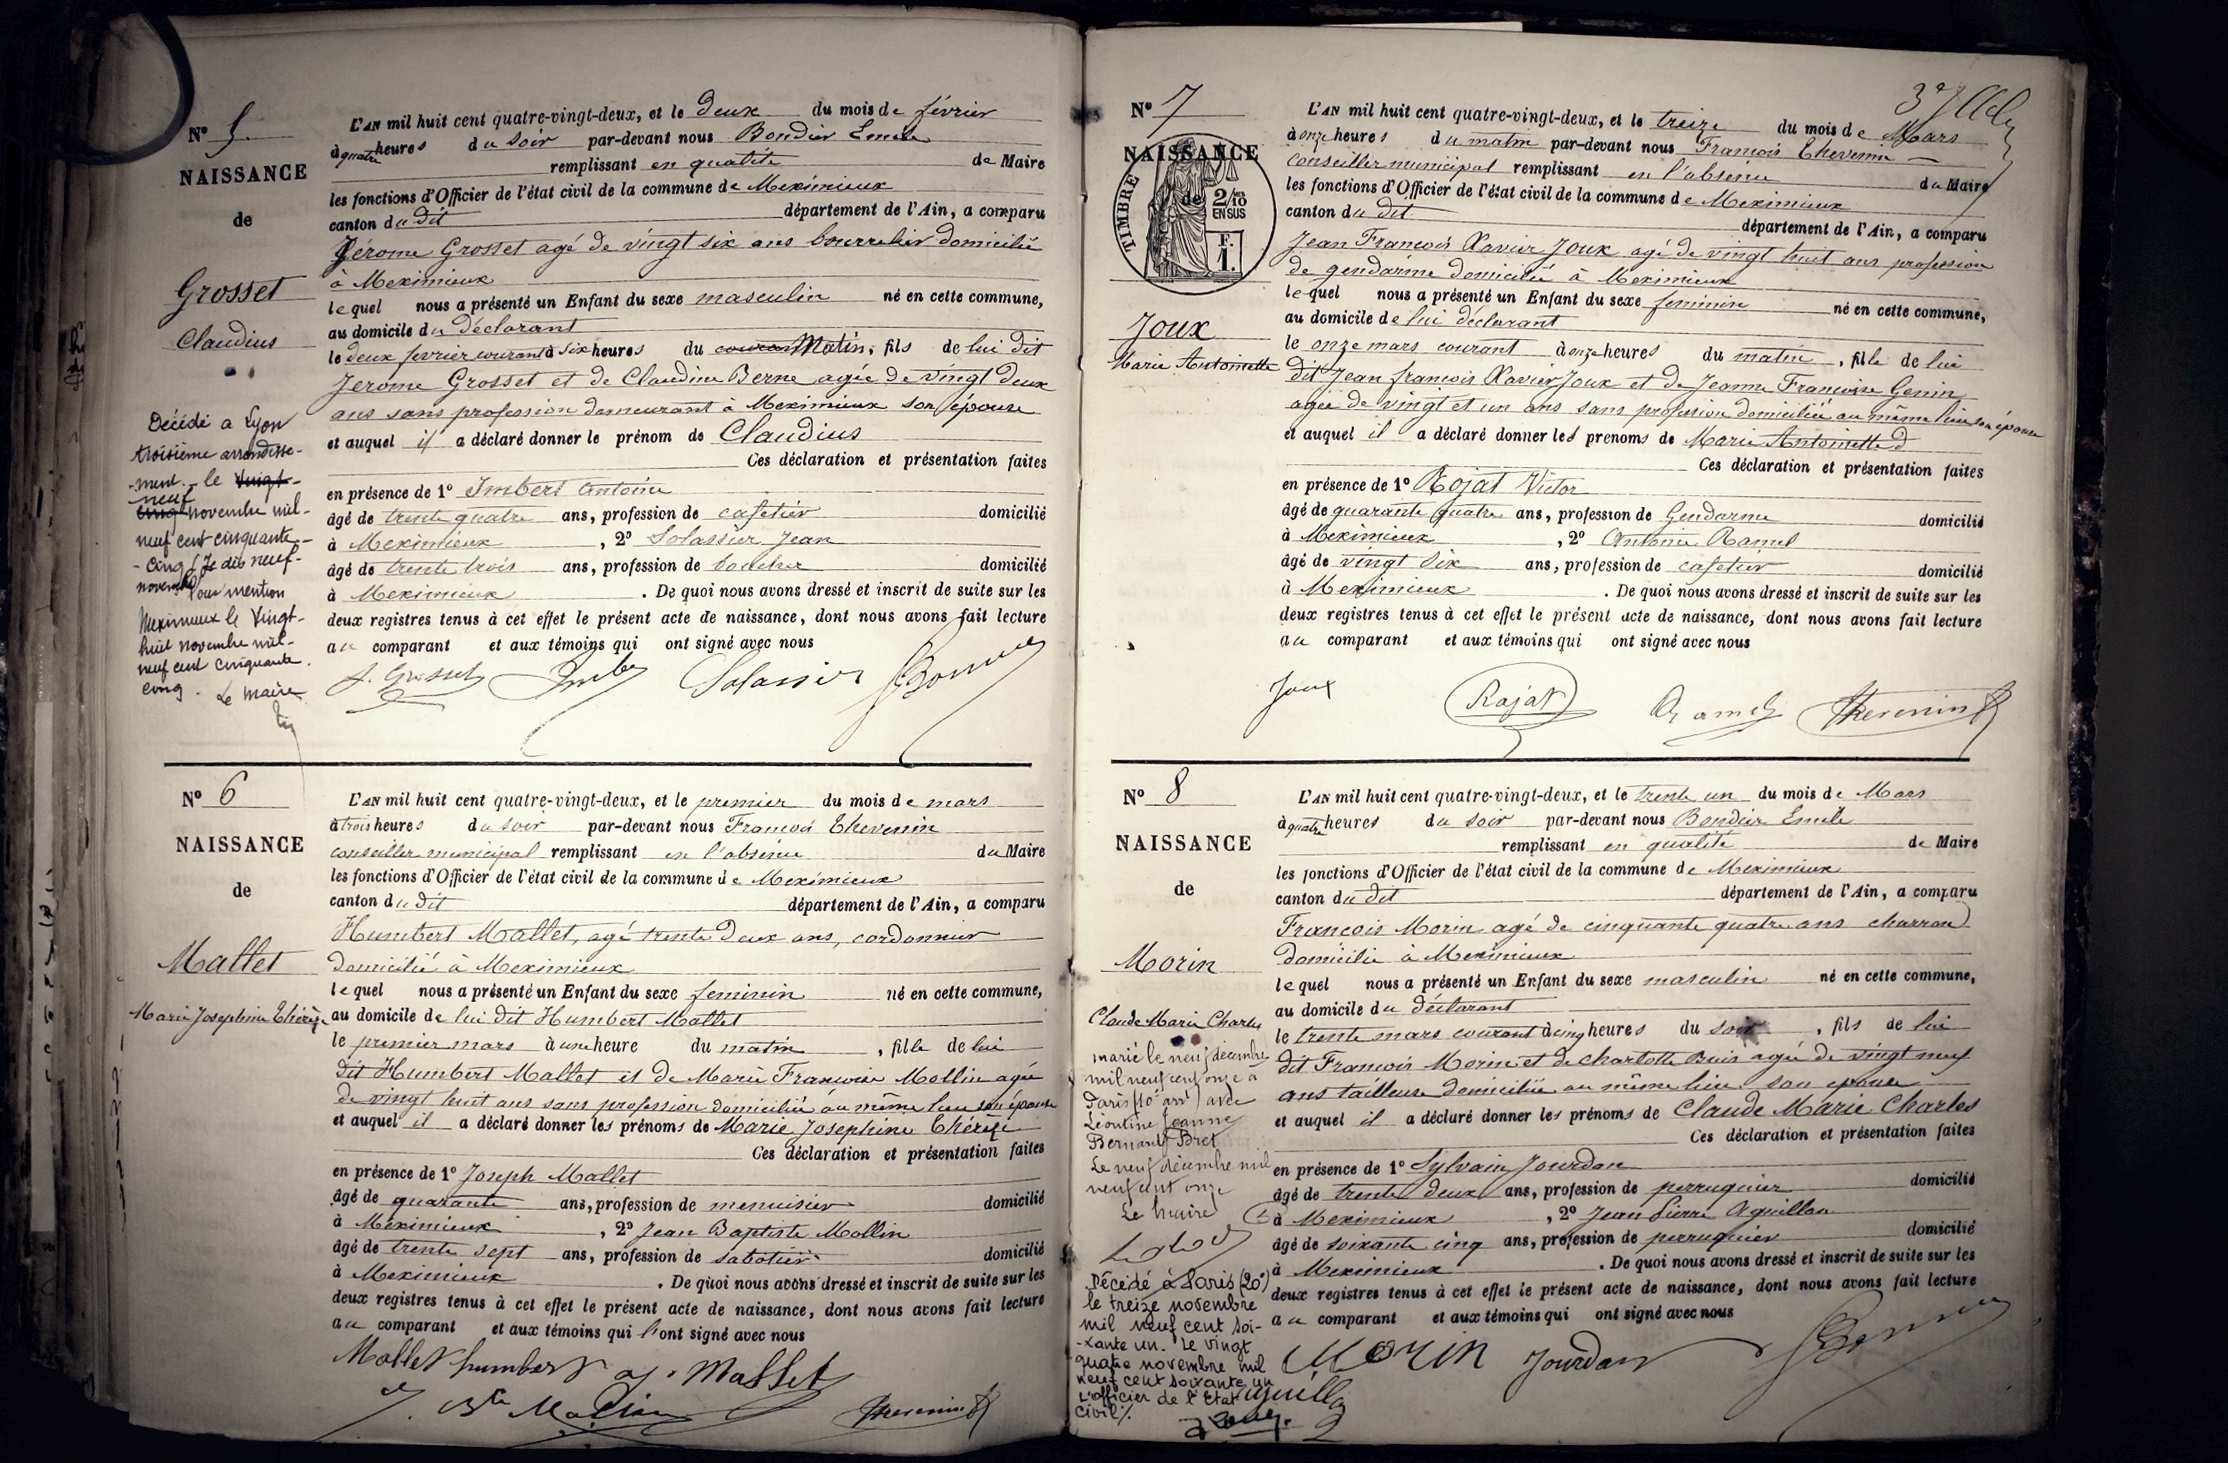 N° 5.
NAISSANCE
de
Grosset
Claudius
Décédé a Lyon
troisième arrondisse-
-ment. le vingt-
neuf
cinq novembre mil-
neuf cent cinquante-
-cinq (Je dis neuf-
novembre Pour mention
Meximieux le Vingt-
huit novembre mil-
neuf cent cinquante
cinq. Le Maire
L'AN mil huit cent quatre-vingt-deux, et le deux du mois de février
à quatre heures du soir par-devant nous Bondier Emile
remplissant en qualité de Maire
les fonctions d'Officier de l'état civil de la commune de Meximieux
canton du dit département de l'Ain, a comparu
Jérome Grosset agé de vingt six ans bourrelier domicilié
à Meximieux
lequel nous a présenté un Enfant du sexe masculin né en cette commune,
au domicile du déclarant
le deux fevrier courant à six heures du Matin, fils de lui dit
Jerome Grosset et de Claudine Berne agée de vingt deux
ans sans profession demeurant à Meximieux son épouse
et auquel il a déclaré donner le prénom de Claudius
Ces déclaration et présentation faites
en présence de 1° Imbert Antoine
âgé de trente quatre ans, profession de cafetier domicilié
à Meximieux, 2° Solassier Jean
âgé de trente trois ans, profession de boucher domicilié
à Meximieux. De quoi nous avons dressé et inscrit de suite sur les
deux registres tenus à cet effet le présent acte de naissance, dont nous avons fait lecture
au comparant et aux témoins qui ont signé avec nous
J. Grosset Imbert Solassier
N° 6
NAISSANCE
de
Mallet
Marie Josephine Thérèze
L'AN mil huit cent quatre-vingt-deux, et le premier du mois de mars
à trois heures du soir par-devant nous François Thevenin
conseiller municipal remplissant en l'absence du Maire
les fonctions d'Officier de l'état civil de la commune de Meximieux
canton du dit département de l'Ain, a comparu
Humbert Mallet, agé trente deux ans, cordonnier
domicilié à Meximieux
lequel nous a présenté un Enfant du sexe feminin né en cette commune,
au domicile de lui dit Humbert Mallet
le premier mars à une heure du matin, fille de lui
dit Humbert Mallet et de Marie Françoise Mollin agée
de vingt huit ans sans profession domiciliée au même lieu son épouse
et auquel il a déclaré donner les prénoms de Marie Josephine Thérèze
Ces déclaration et présentation faites
en présence de 1° Joseph Mallet
âgé de quarante ans, profession de menuisier domicilié
à Meximieux, 2° Jean Baptiste Mollin
âgé de trente sept ans, profession de sabotier domicilié
à Meximieux. De quoi nous avons dressé et inscrit de suite sur les
deux registres tenus à cet effet le présent acte de naissance, dont nous avons fait lecture
au comparant et aux témoins qui ont signé avec nous
Mallet humbert J. Mallet
J. Bte Mollin Thevenin
N° 7
NAISSANCE
TIMBRE
de
2/10
EN SUS
F.
1.
Joux
Marie Antoinette
L'AN mil huit cent quatre-vingt-deux, et le treize du mois de Mars
à onze heures du matin par-devant nous François Thevenin
conseiller municipal remplissant en l'absence du Maire
les fonctions d'Officier de l'état civil de la commune de Meximieux
canton du dit département de l'Ain, a comparu
Jean François Xavier Joux agé de vingt huit ans profession
de gendarme domicilié à Meximieux
lequel nous a présenté un Enfant du sexe féminin né en cette commune,
au domicile de lui déclarant
le onze mars courant à onze heures du matin, fille de lui
dit Jean françois Xavier Joux et de Jeanne Françoise Genin
agée de vingt et un ans sans profession domiciliée au même lieu son épouse
et auquel il a déclaré donner les prenoms de Marie Antoinette
Ces déclaration et présentation faites
en présence de 1° Rojat Victor
âgé de quarante quatre ans, profession de Gendarme domicilié
à Meximieux, 2° Antoine Ramel
âgé de vingt six ans, profession de cafetier domicilié
à Meximieux. De quoi nous avons dressé et inscrit de suite sur les
deux registres tenus à cet effet le présent acte de naissance, dont nous avons fait lecture
au comparant et aux témoins qui ont signé avec nous
Joux Rojat Ramel Thevenin
N° 8
NAISSANCE
de
Morin
Claude Marie Charles
marié le neuf décembre
mil neuf cent onze à
Paris (10e arrt) avec
Léontine Jeanne
Bernard Bret
Le neuf décembre mil
neuf cent onze
Le Maire
Décédé à Paris (20°)
le treize novembre
mil neuf cent soi-
-xante un. Le vingt
quatre novembre mil
neuf cent soixante un
L'officier de l'Etat
civil.
L'AN mil huit cent quatre-vingt-deux, et le trente un du mois de Mars
à quatre heures du soir par-devant nous Bondier Emile
remplissant en qualité de Maire
les fonctions d'Officier de l'état civil de la commune de Meximieux
canton du dit département de l'Ain, a comparu
François Morin agé de cinquante quatre ans charron
domicilié à Meximieux
lequel nous a présenté un Enfant du sexe masculin né en cette commune,
au domicile du déclarant
le trente mars courant à cinq heures du soir, fils de lui
dit François Morin et de Charlotte Buis agée de vingt neuf
ans tailleuse domiciliée au même lieu son epouse
et auquel il a déclaré donner les prénoms de Claude Marie Charles
Ces déclaration et présentation faites
en présence de 1° Sylvain Jourdan
âgé de trente deux ans, profession de perruquier domicilié
à Meximieux, 2° Jean Pierre Aguillon
âgé de soixante cinq ans, profession de perruquier domicilié
à Meximieux. De quoi nous avons dressé et inscrit de suite sur les
deux registres tenus à cet effet le présent acte de naissance, dont nous avons fait lecture
au comparant et aux témoins qui ont signé avec nous
Morin Jourdan